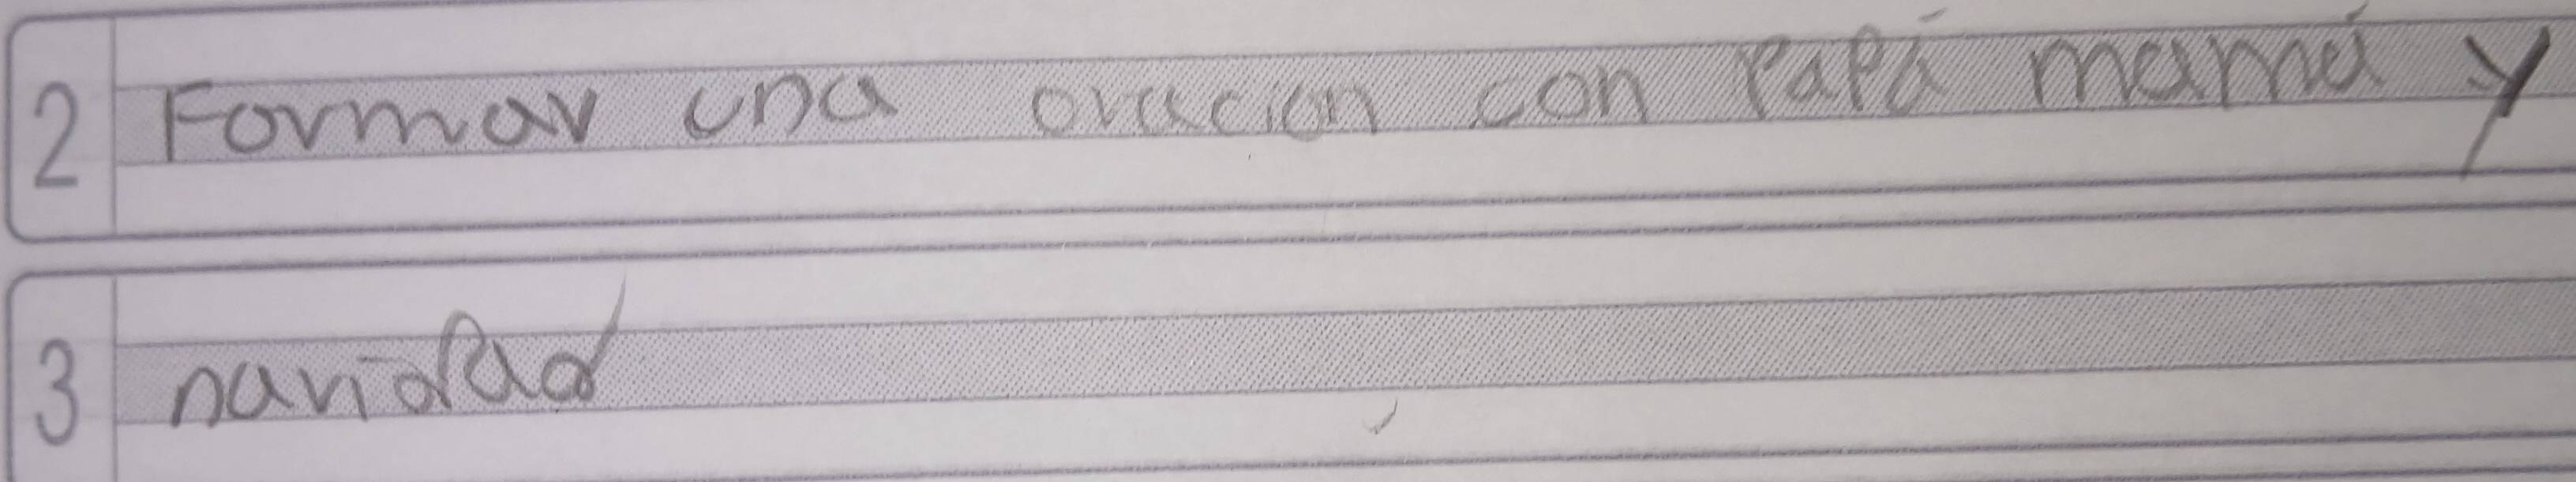 2 Formar una oracion con Papá mamá y
3 navidad